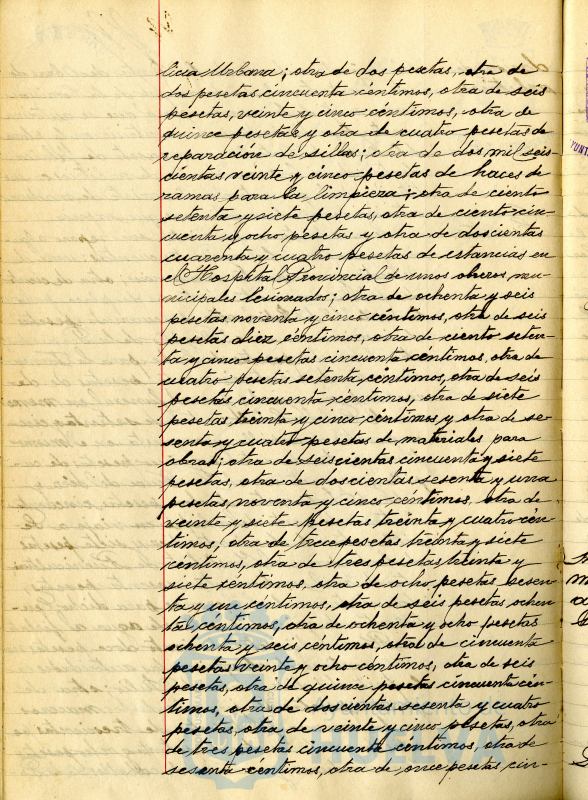 licia Urbana; otra de dos pesetas, otra de
dos pesetas cincuenta céntimos, otra de seis
pesetas, veinte y cinco céntimos, otra de
quince pesetas y otra de cuatro pesetas de
reparación de sillas; otra de dos mil seis-
cientas veinte y cinco pesetas de haces de
ramas para la limpieza; otra de ciento
setenta y siete pesetas, otra de ciento cin-
cuenta y ocho pesetas y otra de doscientas
cuarenta y cuatro pesetas de estancias en
el Hospital Provincial de unos obreros mu-
nicipales lesionados; otra de ochenta y seis
pesetas noventa y cinco céntimos, otra de seis
pesetas diez céntimos, otra de ciento seten-
ta y cinco pesetas cincuenta céntimos, otra de
cuatro pesetas setenta céntimos, otra de seis
pesetas cincuenta céntimos, otra de siete
pesetas treinta y cinco céntimos y otra de se-
senta y cuatro pesetas de materiales para
obras; otra de seiscientas cincuenta y siete
pesetas, otra de doscientas sesenta y una
pesetas noventa y cinco céntimos, otra de
veinte y siete pesetas treinta y cuatro cén-
timos, otra de trece pesetas treinta y siete
céntimos, otra de tres pesetas treinta y
siete céntimos, otra de ocho pesetas sesen-
ta y un céntimos, otra de seis pesetas ochen-
ta céntimos, otra de ochenta y ocho pesetas
ochenta y seis céntimos, otra de cincuenta
pesetas veinte y ocho céntimos, otra de seis
pesetas, otra de quince pesetas cincuenta cén-
timos, otra de doscientas sesenta y cuatro
pesetas, otra de veinte y cinco pesetas, otra
de tres pesetas cincuenta céntimos, otra de
sesenta céntimos, otra de once pesetas cin-
HUELVA